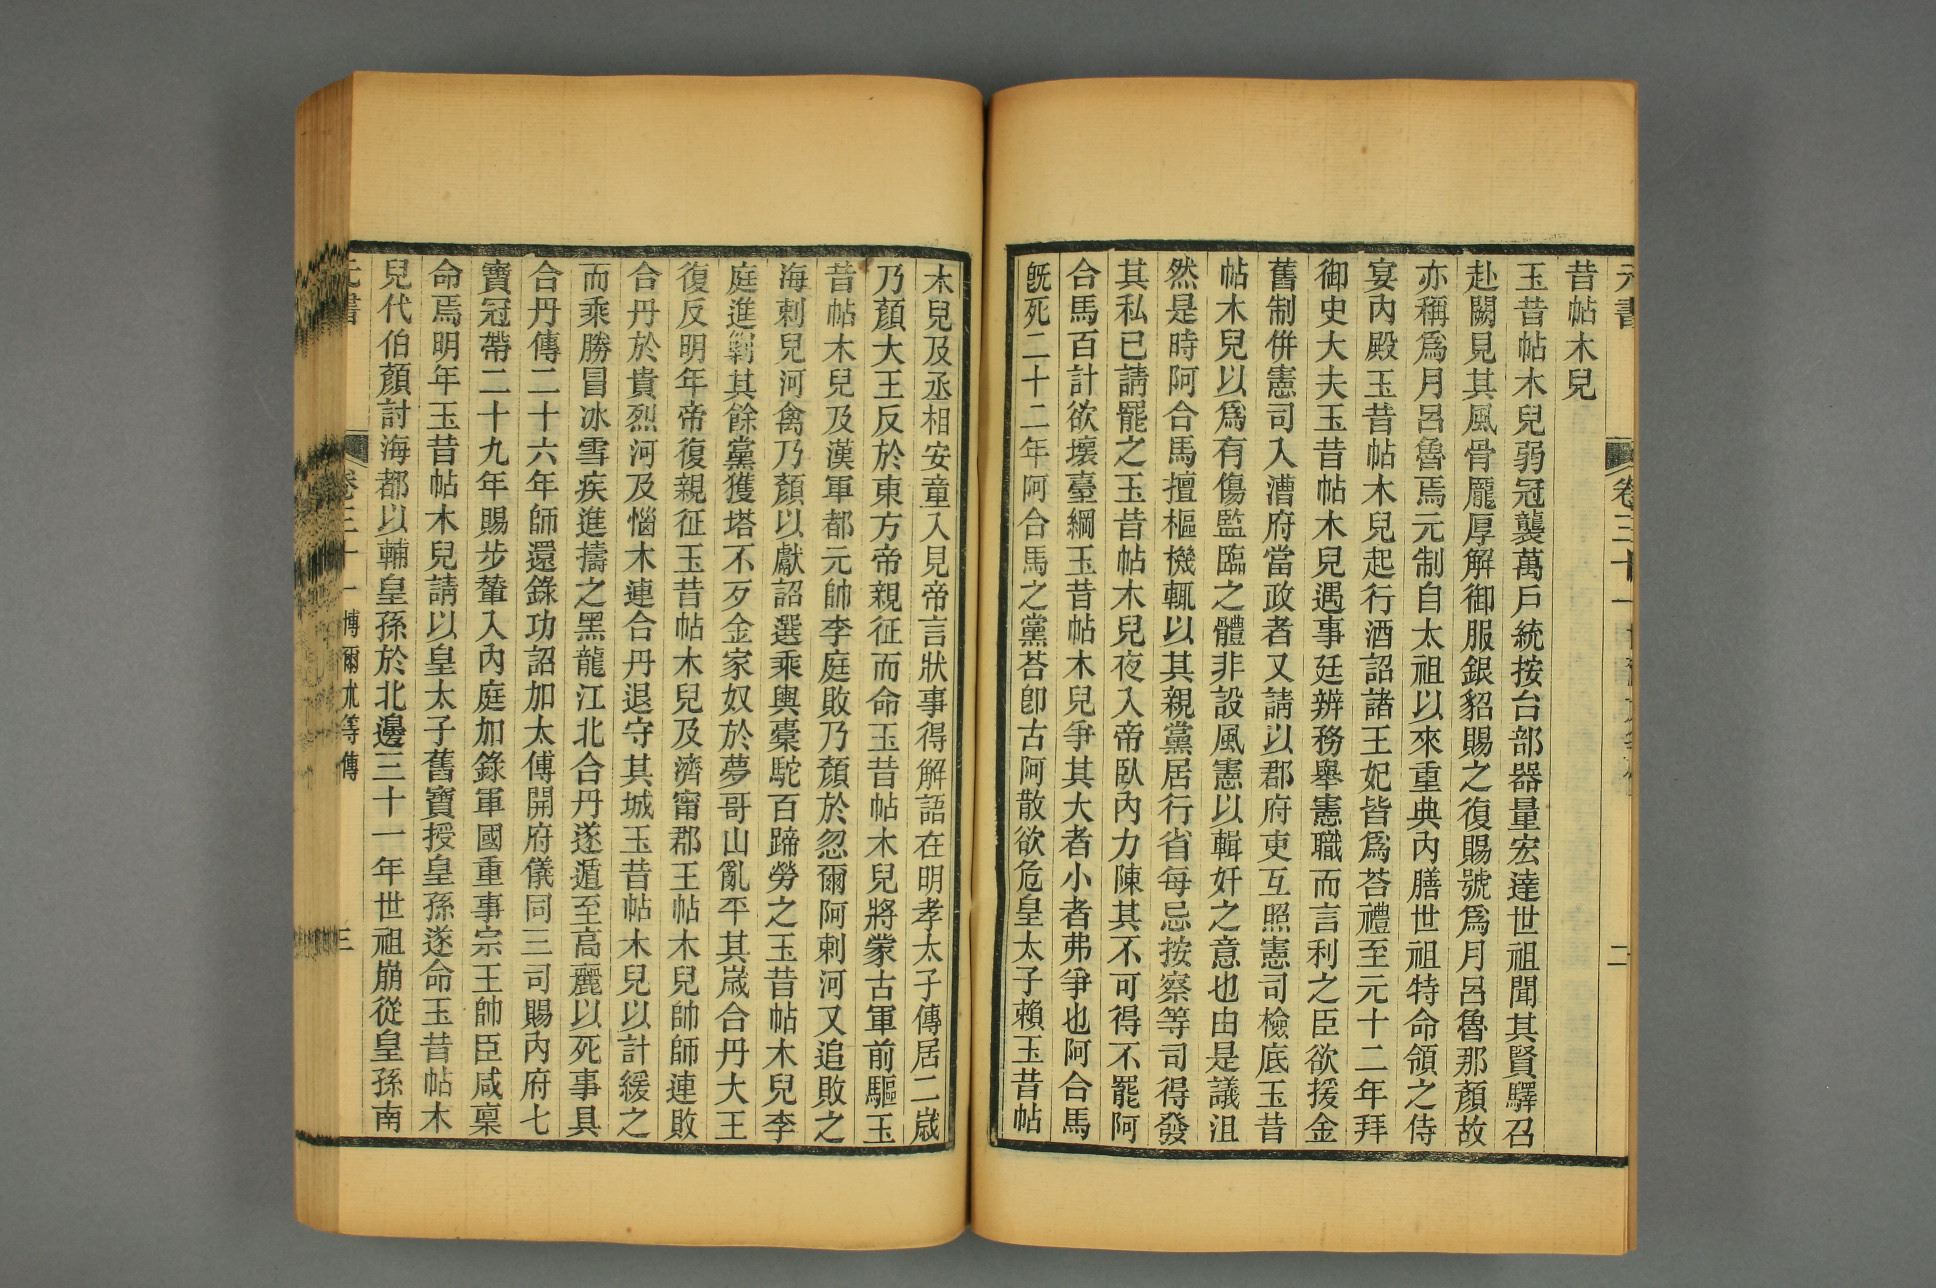 元書
卷三十一
二
昔帖木兒
玉昔帖木兒弱冠襲萬戸統按台部器量宏達世祖聞其賢驛召
赴闕見其風骨龎厚解御服銀貂賜之復賜號爲月呂魯那顏故
亦稱爲月呂魯焉元制自太祖以來重典內膳世祖特命領之侍
宴內殿玉昔帖木兒起行酒詔諸王妃皆爲荅禮至元十二年拜
御史大夫玉昔帖木兒遇事廷辨務舉憲職而言利之臣欲援金
舊制併憲司入漕府當政者又請以郡府吏互照憲司檢底玉昔
帖木兒以爲有傷監臨之體非設風憲以輯奸之意也由是議沮
然是時阿合馬擅樞機輒以其親黨居行省每忌按察等司得發
其私已請罷之玉昔帖木兒夜入帝臥內力陳其不可得不罷阿
合馬百計欲壞臺綱玉昔帖木兒爭其大者小者弗爭也阿合馬
旣死二十二年阿合馬之黨荅卽古阿散欲危皇太子賴玉昔帖
木兒及丞相安童入見帝言狀事得解語在明孝太子傳居二歲
乃顏大王反於東方帝親征而命玉昔帖木兒將蒙古軍前驅玉
昔帖木兒及漢軍都元帥李庭敗乃顏於忽爾阿剌河又追敗之
海剌兒河禽乃顏以獻詔選乘輿橐駝百蹄勞之玉昔帖木兒李
庭進覊其餘黨獲塔不歹金家奴於夢哥山亂平其歲合丹大王
復反明年帝復親征玉昔帖木兒及濟甯郡王帖木兒帥師連敗
合丹於貴烈河及惱木連合丹退守其城玉昔帖木兒以計緩之
而乘勝冒冰雪疾進擣之黑龍江北合丹遂遁至高麗以死事具
合丹傳二十六年師還錄功詔加太傅開府儀同三司賜內府七
寶冠帶二十九年賜步輦入內庭加錄軍國重事宗王帥臣咸稟
命焉明年玉昔帖木兒請以皇太子舊寶授皇孫遂命玉昔帖木
兒代伯顏討海都以輔皇孫於北邊三十一年世祖崩從皇孫南
元書
卷三十一 博爾朮等傳
三